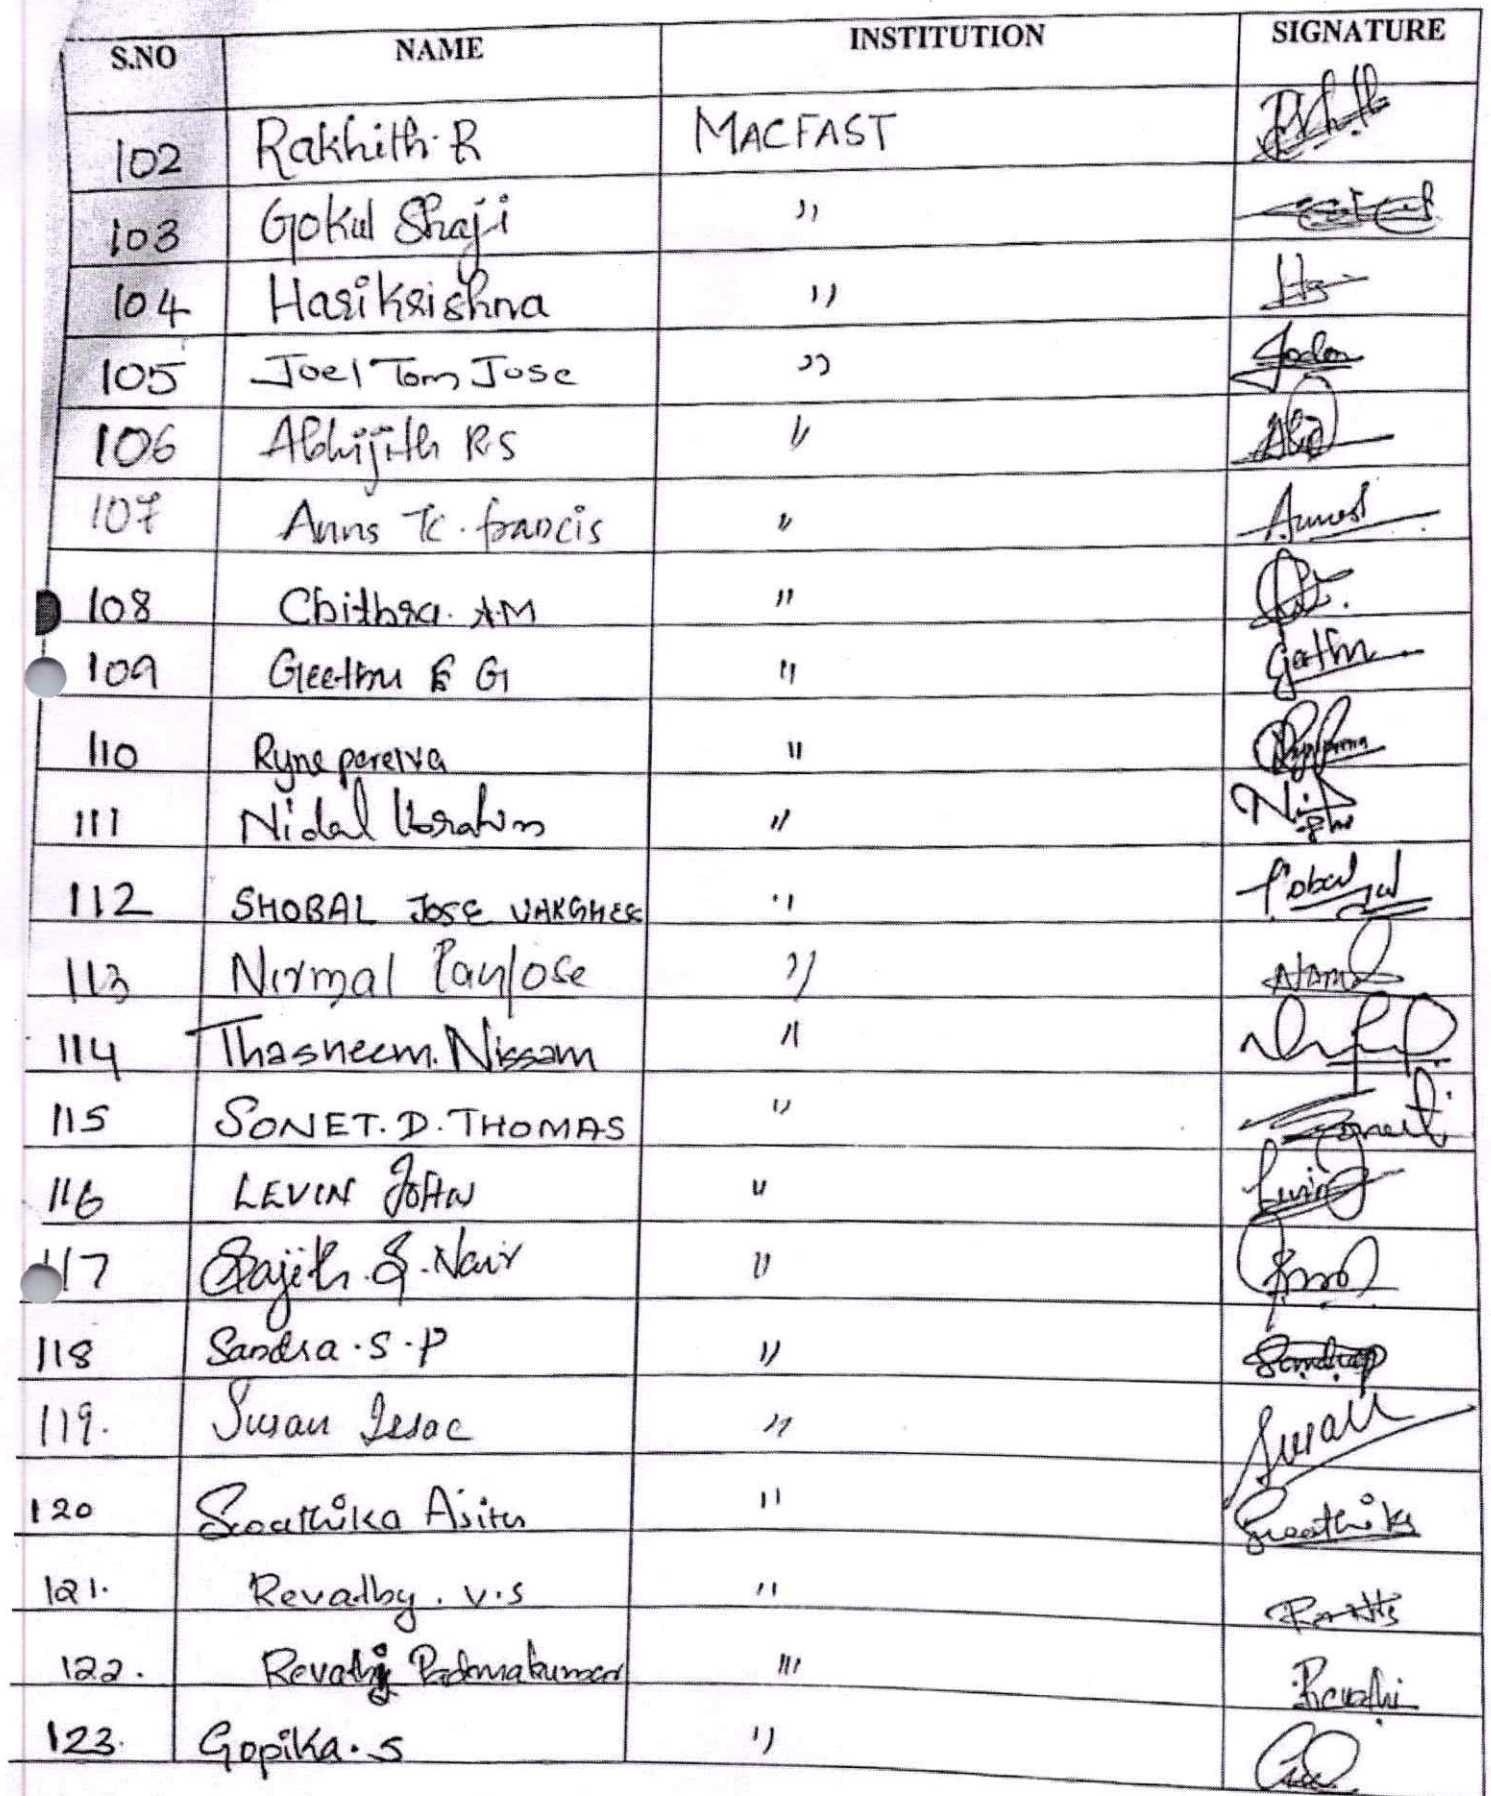 S.NO NAME INSTITUTION SIGNATURE
102 Rakhith.R MACFAST
103 Gokul Shaji "
104 Harikrishna "
105 Joel Tom Jose "
106 Abhijith R.S "
107 Anns K. francis "
108 Chithra. A.M "
109 Geethu G "
110 Ryne pereira "
111 Nidal Ibrahim "
112 SHOBAL JOSE VARGHESE "
113 Nirmal Paulose "
114 Thasneem. Nissam "
115 SONET. D. THOMAS "
116 LEVIN JOHN "
117 Sajith. S. Nair "
118 Sandra. S. P "
119. Susan Issac " Susan
120 Swathika Ajith "
121. Revathy. V.S "
122. Revathy Padmakumar "' Revathi
123. Gopika. S "